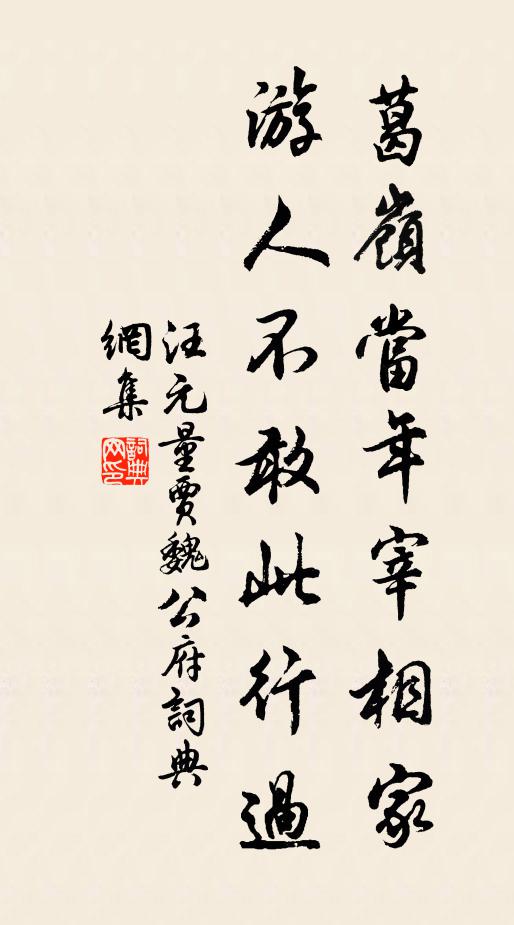 葛嶺當年宰相家
游人不敢此行過
汪元量賈魏公府詞典
網集
詞典
网印